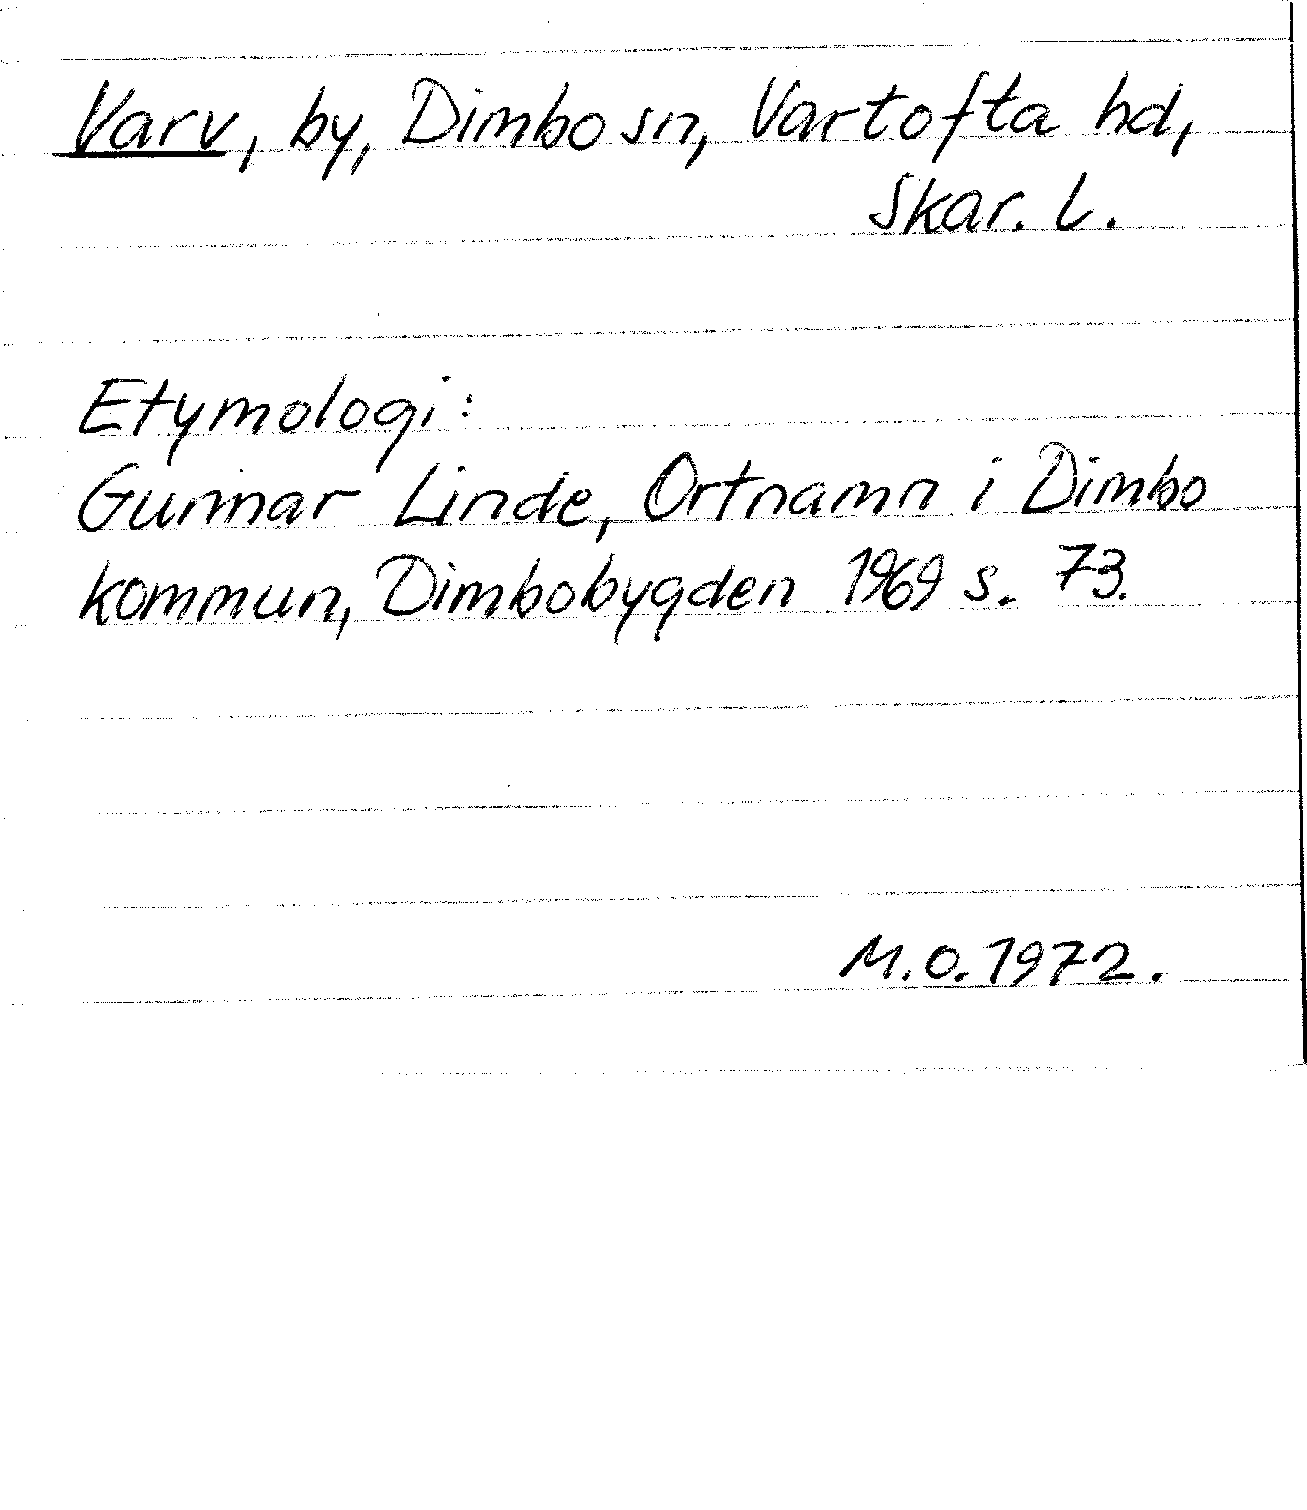 Varv, by, Dimbo sn, Vartofta hd,
Skar. l.
Etymologi:
Gunnar Linde, Ortnamn i Dimbo
kommun, Dimbobygden 1969 s. 73.
M.O. 1972.